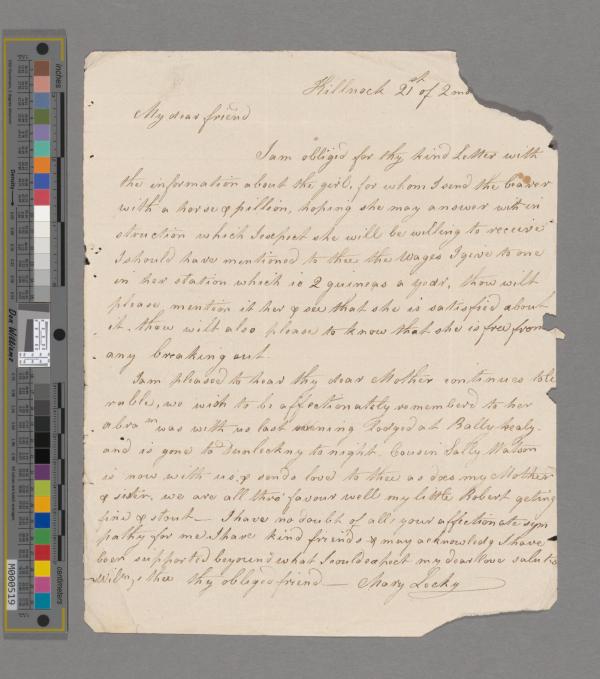 Killnock 21st of 2 mo
My dear friend
I am obliged for thy kind Letter with
the information about the girl, for whom I send the bearer
with a horse & pillion, hoping she may answer with in
struction which I expect she will be willing to receive
I should have mentioned to thee the Wages I give to one
in her station which is 2 guineas a year, thou wilt
please mention it her & see that she is satisfied about
it. thou wilt also please to know that she is free from
any breaking out.
I am pleased to hear thy dear Mother continues tole
rable, we wish to be affectionately remembered to her
abram was with us last evening Lodged at Ballykealy.
and is gone to Dunleckny to night. Cousin Sally Watson
is now with us & sends love to thee as does my Mother
& sister. we are all thro' favour well my little Robert geting
fine & stout — I have no doubt of all your affectionate sym
pathy for me. I have kind friends & may acknowledge I have
been supported beyound what I could expect my dear love salutes
thee thy obliged friend — Mary Lecky
inches
centimeters
Density
Don Williams
M000519